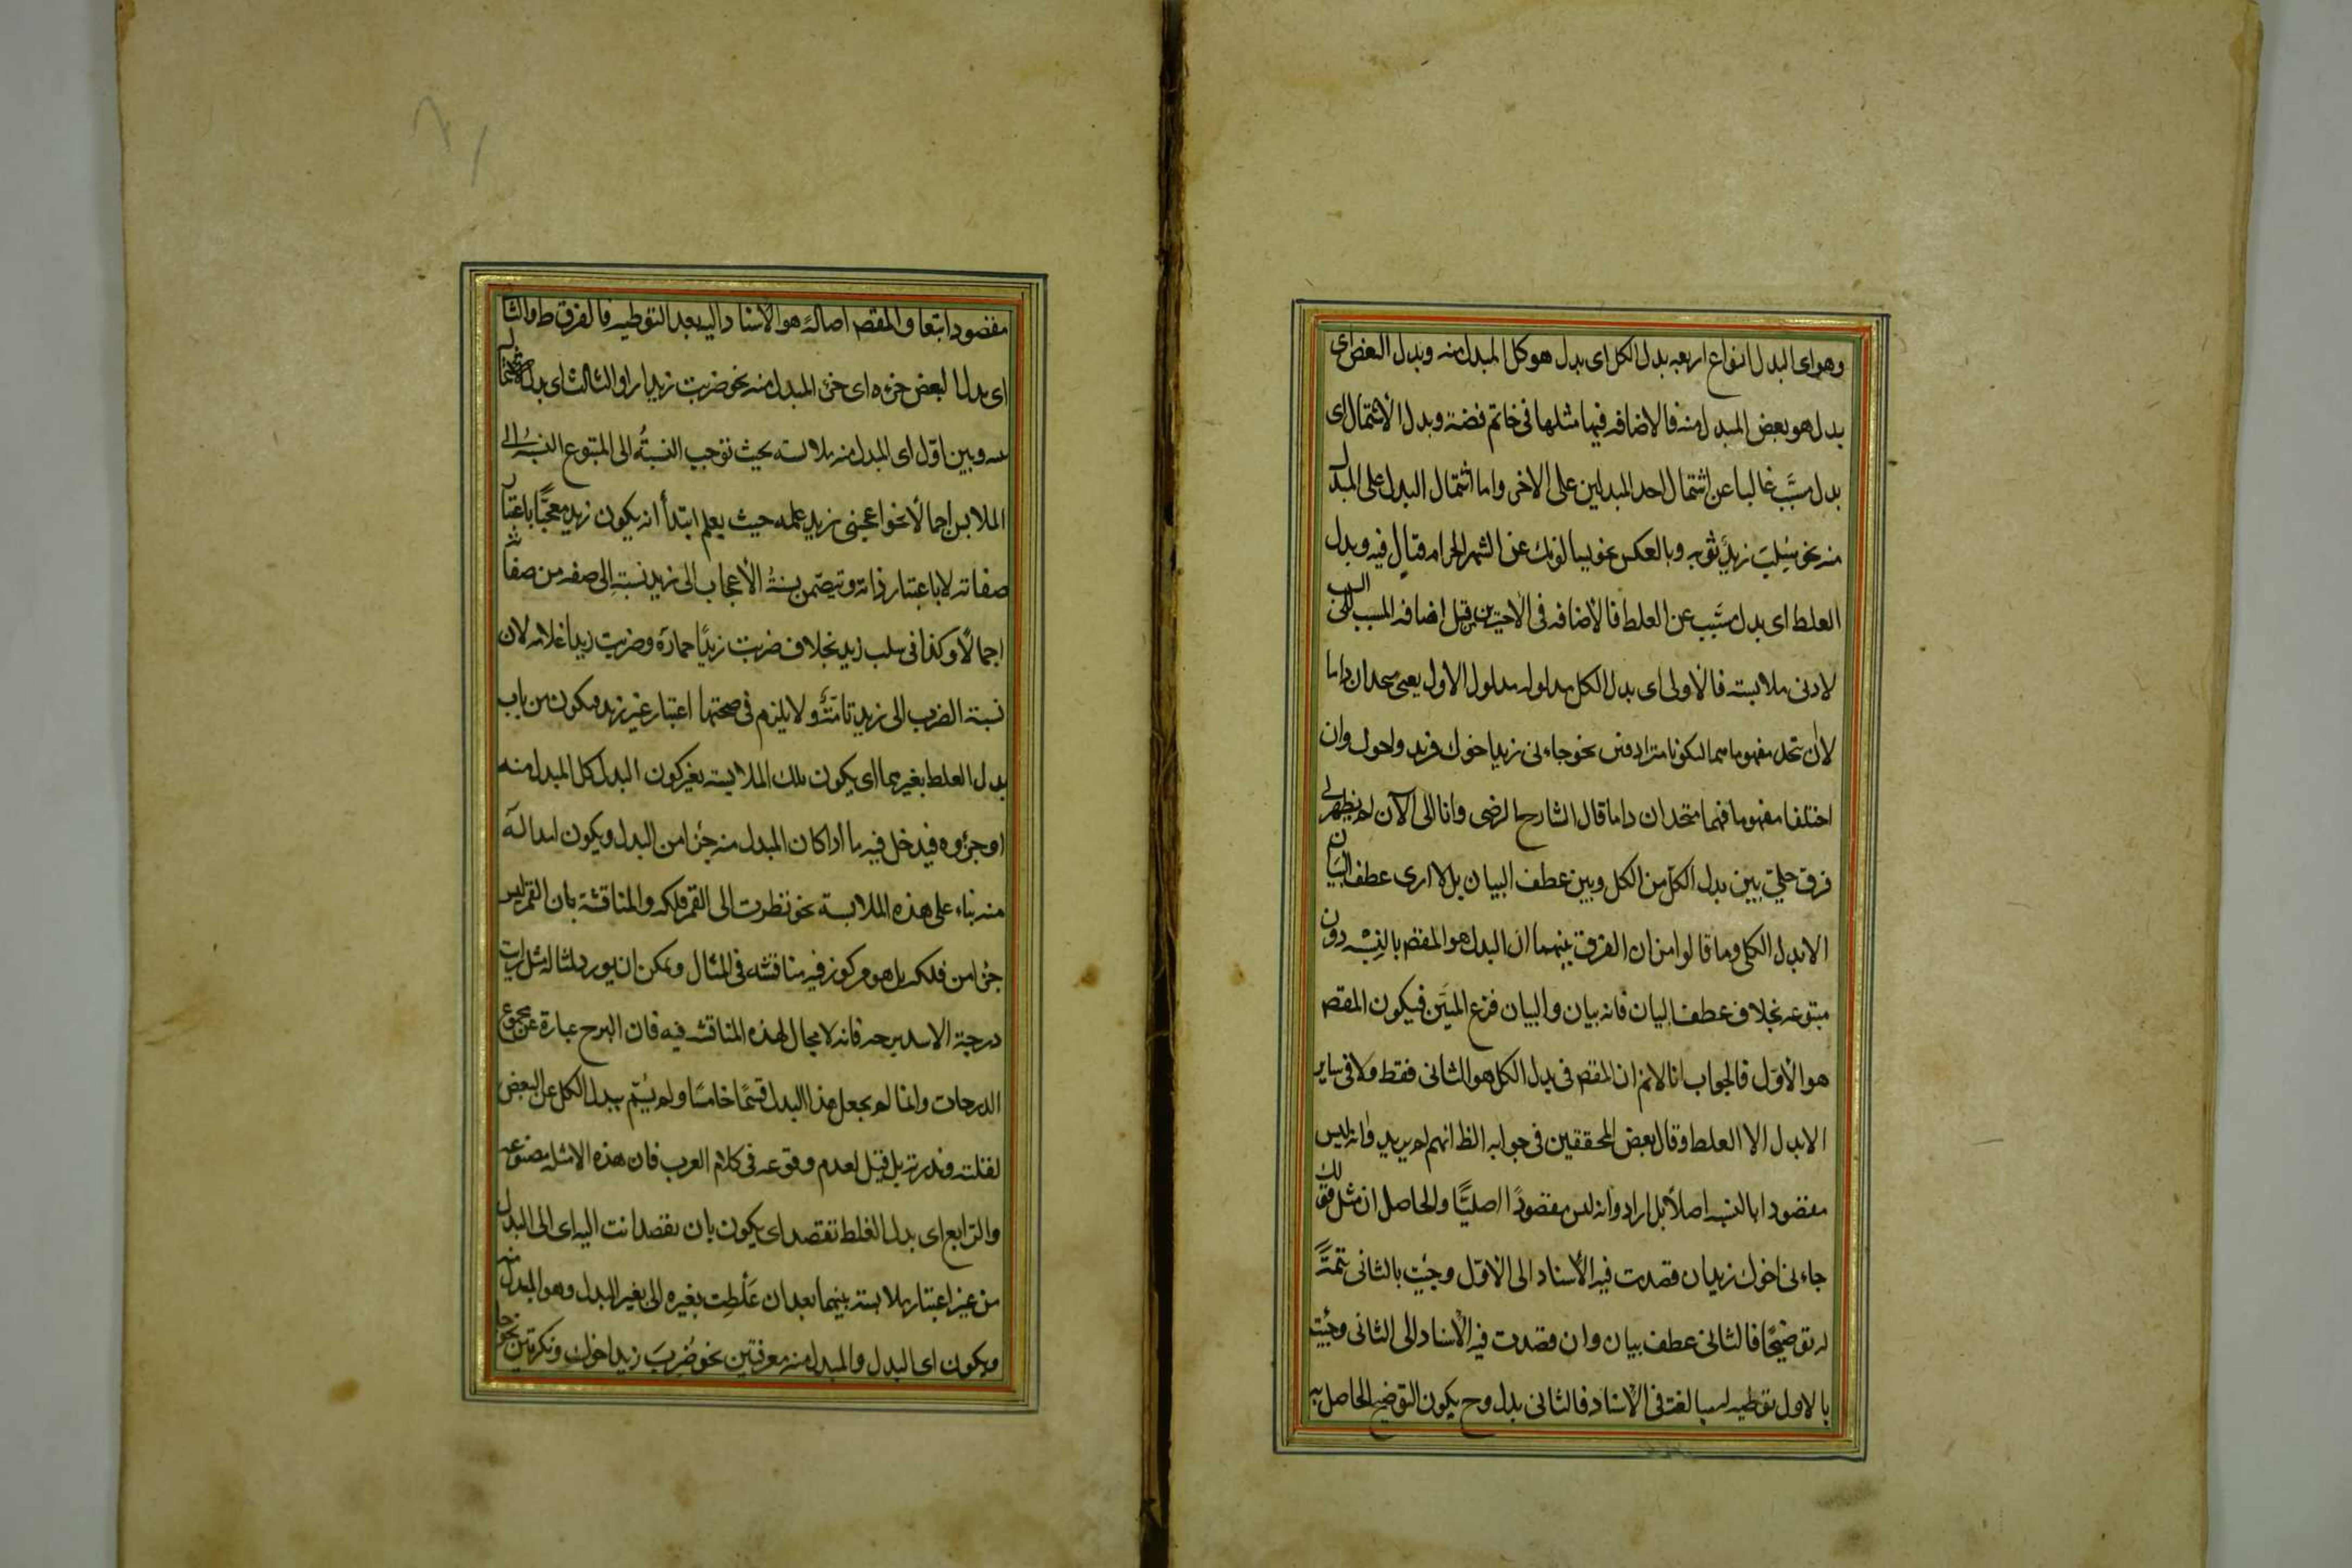 وهو اى البدل انواع اربعه بدل الكل اى بدل هو كل المبدل منه وبدل البعض اى
بدل هو بعض المبدل منه فالاضافه فيها مثلها فى خاتم فضة وبدل الاشتمال اى
بدل مسبَّب غالبا عن اشتمال احد المبدلين على الاخر واما اشتمال البدل على المبدل
منه نحو سُلِبَ زيدٌ ثوبه وبالعكس نحو يسالونك عن الشهر الحرام قتالٍ فيه وبدل
الغلط اى بدل مسبَّب عن الغلط فالاضافه فى الاخيرين من قبيل اضافه المسبب الى السبب
لادنى ملابسته فالاولى اى بدل الكل مدلوله مدلول الاول يعنى متحدان ذاتا
لا ان يتحد مفهوماهما ليكونا مترادفين نحو جاءنى زيد اخوك فزيد واخوك وان
اختلفا مفهوما فهما متحدان ذاتا قال الشارح الرضى وانا الى الآن لم يظهر لى
فرق جلىّ بين بدل الكل من الكل وبين عطف البيان بل لا ارى عطف البيان
الا بدل الكل وما قالوا من ان الفرق بينهما انّ البدل هو المقصـ بالنسبه دون
متبوعه بخلاف عطف البيان فانه بيان والبيان فرع المبيَّن فيكون المقصـ
هو الأوّل فالجواب انا لانم ان المقصـ فى بدل الكل هو الثانى فقط ولا فى ساير
الابدال الا الغلط وقال بعض المحققين فى جوابه الظ انهم لم يريدوا انه ليس
مقصودا بالنسبه اصلاً بل ارادوا انه ليس مقصودًا اصليًّا والحاصل ان مثل قولك
جاءنى اخوك زيد ان قصدت فيه الأسناد الى الأوّل وجئت بالثانى تتمّةً
له توضيحًا فالثانى عطف بيان وان قصدت فيه الأسناد الى الثانى وجئت
بالاول توطيه له مبالغة فى الأسناد فالثانى بدل وح يكون التوضيح الحاصل به
مقصودا تبعا والمقصـ اصالةً هو الأسناد اليه بعد التوطيه فالفرق ظ والثانى
اى بدل البعض جزءه اى جزء المبدل منه نحو ضربت زيدا راسه والثالث اى بدل الاشتمال
بينه وبين اوّل اى المبدل منه ملابسته بحيث توجب النسبةُ الى المتبوع النسبه الى
الملابس اجمالاً نحو اعجبنى زيد علمه حيث يعلم ابتدأ انه يكون زيد معجبًا باعتبار
صفاته لا باعتبار ذاته وتتضمن نسبةُ الأعجاب الى زيد نسبته الى صفه من صفاته
اجمالاً وكذا فى سلب زيد بخلاف ضربت زيدًا حمارَه وضربت زيدا غلامه لان
نسبة الضرب الى زيد تامّةٌ ولا يلزم فى صحتها اعتبار غير زيد فيكون من باب
بدل الغلط بغيرهما اى يكون تلك الملابسته بغير كون البدل كل المبدل منه
او جزؤه فيدخل فيه ما اذا كان المبدل منه جزءا من البدل ويكون ابداله
منه بناء على هذه الملابسة نحو نظرت الى القمر فلكه والمناقشة بان القمر ليس
جزءا من فلكه بل هو مركوز فيه مناقشه فى المثال ويمكن ان يورد لمثاله مثل رايت
درجة الاسد برجه فانه لا مجال لهذه المناقشه فيه فان البرج عبارة عن مجموع
الدرجات وانما لم يجعل هذا البدل قسمًا خامسًا ولم يُسَمّ ببدل الكل عن البعض
لقلته وندرته بل قيل لعدم وقوعه فى كلام العرب فان هذه الامثله مصنوعه
والرّابع اى بدل الغلط تقصد اى يكون بان تقصد انت اليه اى الى البدل
من غير اعتبار ملابسته بينهما بعد ان غَلَطت بغيره اى بغير البدل وهو المبدل منه
ويكون اى البدل والمبدل منه معرفتين نحو ضُرِبَ زيد اخوك ونكرتين نحو جا